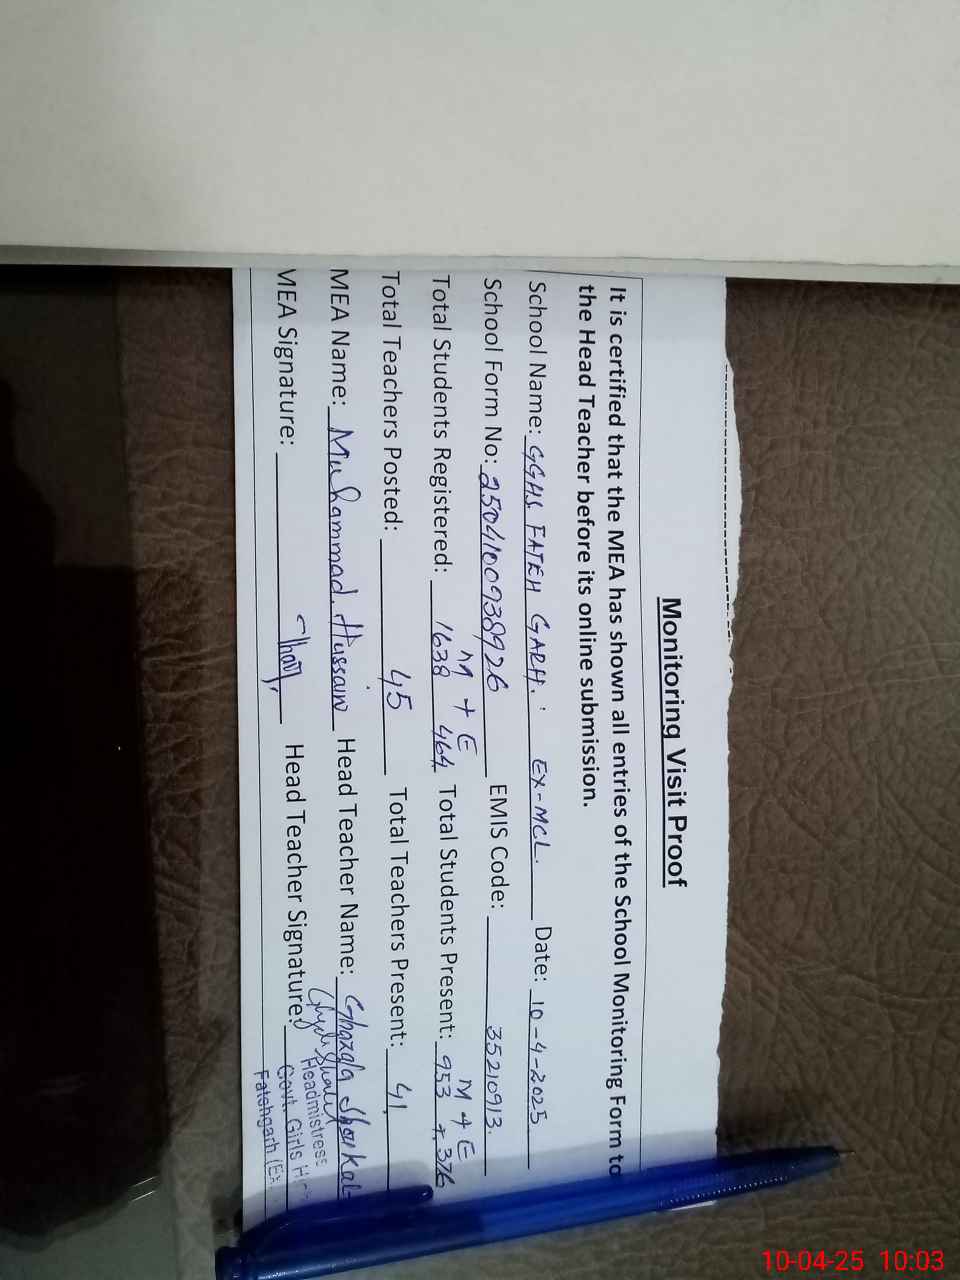 Monitoring Visit Proof
It is certified that the MEA has shown all entries of the School Monitoring Form to
the Head Teacher before its online submission.
School Name: GGHS FATEH GARH. : EX-MCL. Date: 10-4-2025
School Form No: 2504100938926 EMIS Code: 35210913.
M + E M + E
Total Students Registered: 1638 464 Total Students Present: 953 + 376
Total Teachers Posted: 45 Total Teachers Present: 41
MEA Name: Muhammad Hussain Head Teacher Name: Ghazala Shoukat
MEA Signature: Head Teacher Signature:
Headmistress
Govt. Girls
Fatehgarh (Ex
10-04-25 10:03